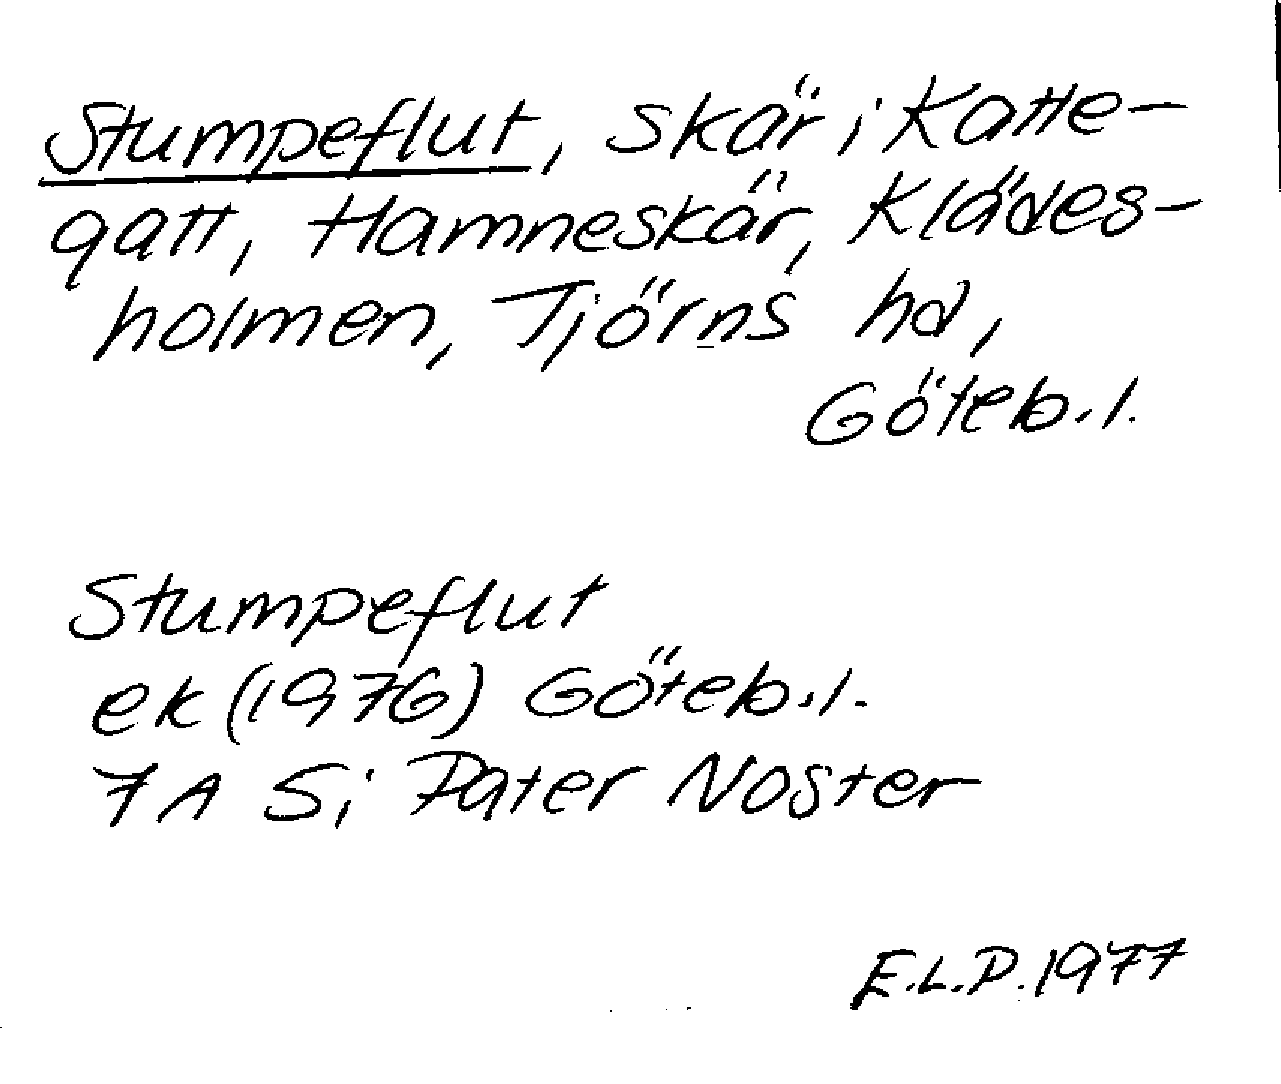 Stumpeflut, skär i Katte-
gatt, Hamneskär, Klädes-
holmen, Tjörns hd,
Göteb. l.
Stumpeflut
ek (1976) Göteb. l.
7A Si Pater Noster
E.L.P. 1977